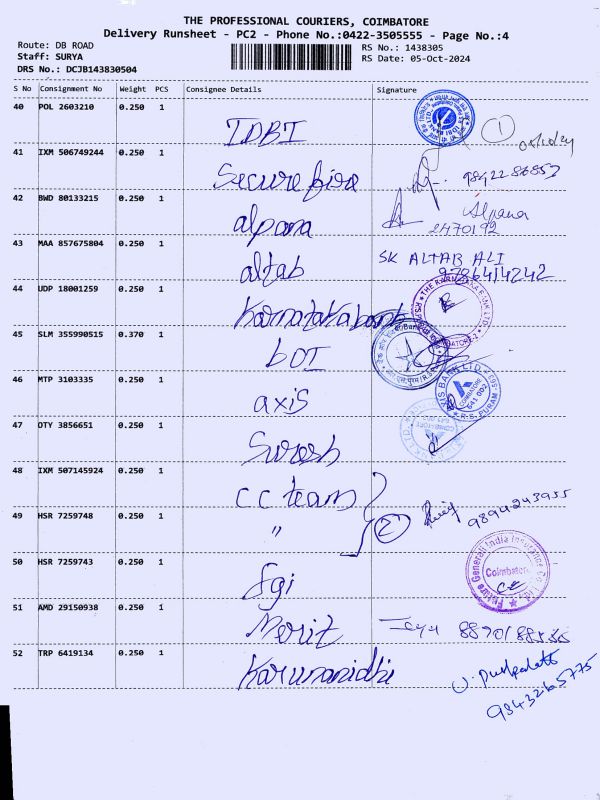 THE PROFESSIONAL COURIERS, COIMBATORE
Delivery Runsheet - PC2 - Phone No.:0422-3505555 - Page No.:4
Route: DB ROAD
RS No.: 1438305
Staff: SURYA
RS Date: 05-Oct-2024
DRS No.: DCJB143830504
S No Consignment No Weight PCS Consignee Details Signature
40 POL 2603210 0.250 1 IDBI 1 05/10/24
41 IXM 506749244 0.250 1 Secure fire
42 BWD 80133215 0.250 1 alpana Alpana
2470192
43 MAA 857675804 0.250 1 altab SK ALTAB ALI
9786414242
44 UDP 18001259 0.250 1 Karnataka bank
45 SLM 355990515 0.370 1 BOI
46 MTP 3103335 0.250 1 axis AXIS BANK LTD. COIMBATORE 641 002 R.S. PURAM
47 OTY 3856651 0.250 1 Suresh
48 IXM 507145924 0.250 1 CC team 2 9894243955
49 HSR 7259748 0.250 1 "
50 HSR 7259743 0.250 1 fgi Future Generali India Insurance Co. Ltd. Coimbatore
51 AMD 29150938 0.250 1 Merit
52 TRP 6419134 0.250 1 Karunanidhi
9843265775